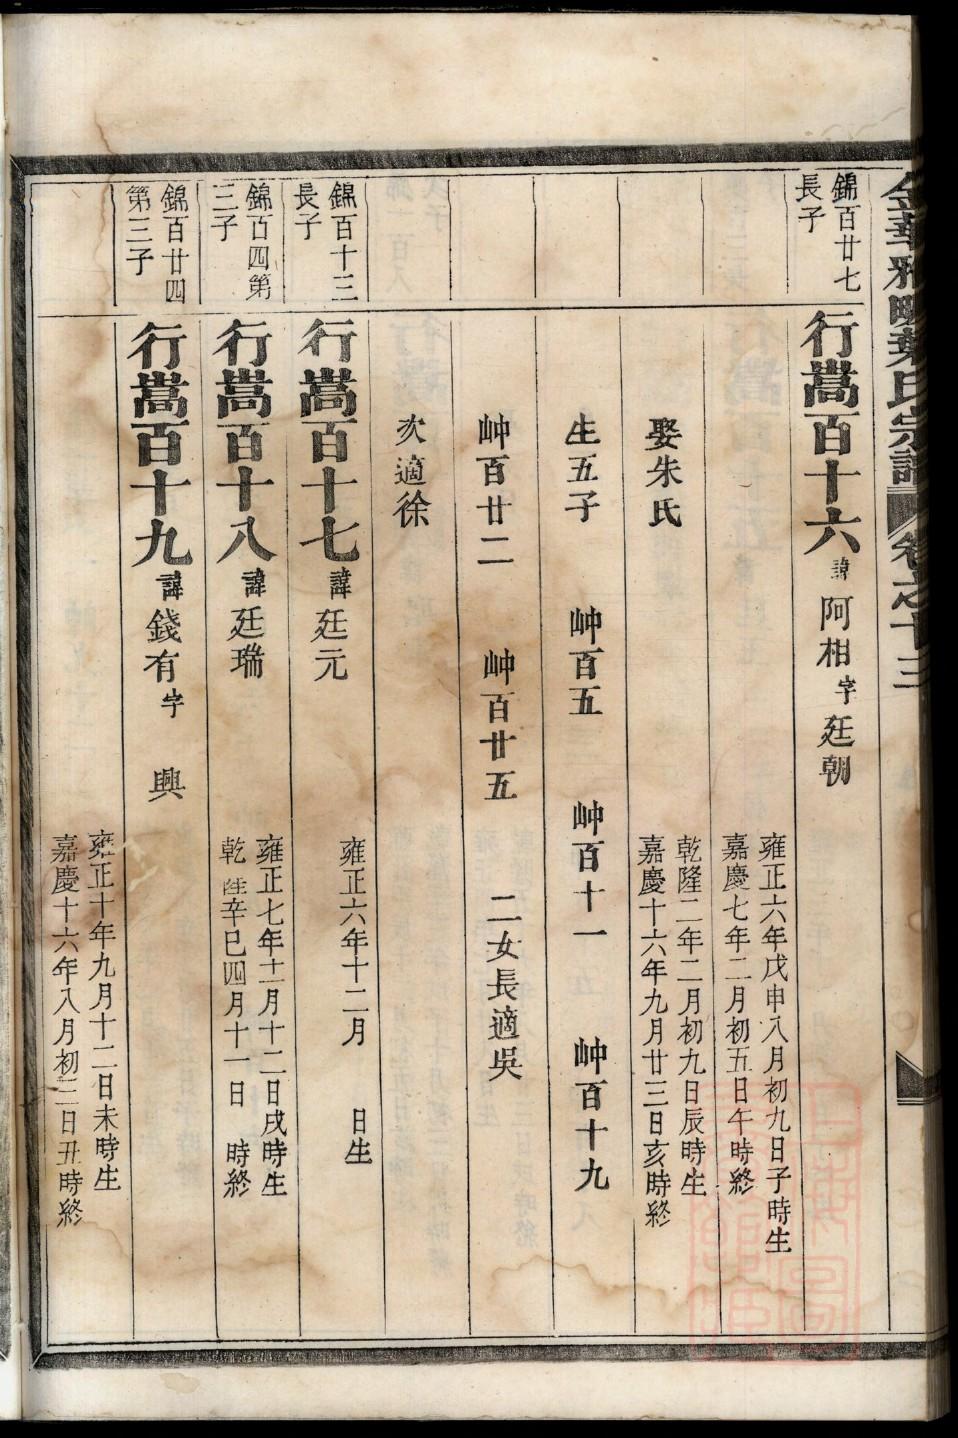 金華雅畈葉氏宗譜 卷之十三
錦百廿七
長子
行嵩百十六 諱阿相 字廷朝
雍正六年戊申八月初九日子時生
嘉慶七年二月初五日午時終
娶朱氏
乾隆二年二月初九日辰時生
嘉慶十六年九月廿三日亥時終
生五子 岫百五 岫百十一 岫百十九
岫百廿二 岫百廿五 二女長適吳
次適徐
錦百十三
長子
行嵩百十七 諱廷元
雍正六年十二月 日生
錦百四第
三子
行嵩百十八 諱廷瑞
雍正七年十一月十二日戌時生
乾隆辛巳四月十一日 時終
錦百廿四
第三子
行嵩百十九 諱錢有 字 興
雍正十年九月十二日未時生
嘉慶十六年八月初三日丑時終